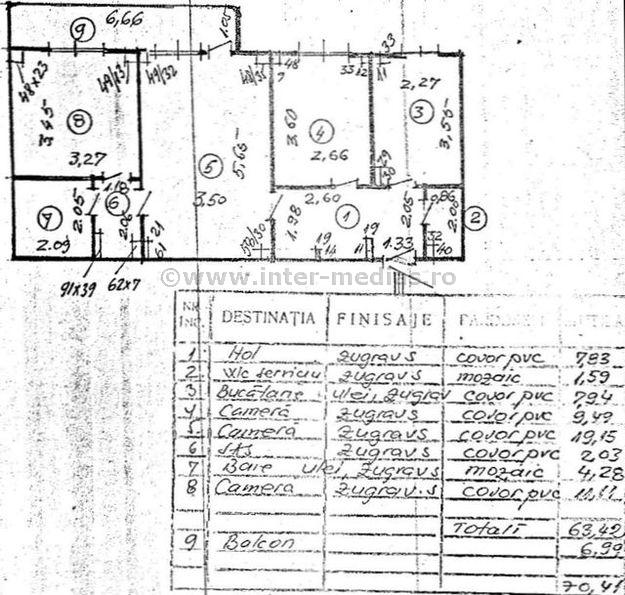 9 6,66 1.05
48x23 49/43 49/32 40/35 7 48 33 12 11 33
3.45 8 3,27
5,65 5 3.50
3.60 4 2.66
2,27 3 3,55
29
7 2.05 2.09
6 1.18 2.05
21 61
91x39 62x7
50/30 1.98 2.60 1 19 14 19 11 1.33
2.05 0,86 2.06 2
32 40
©www.inter-medius.ro
NR. ÎNC. DESTINAȚIA FINISAJE
1 Hol zugrav s covor pvc 7,83
2 w/c serviciu zugrav s mozaic 1,59
3 Bucătarie ulei, zugrav covor pvc 7.94
4 Cameră zugrav s covor pvc 9,49
5 Cameră zugrav s covor pvc 19,15
6 zugrav s covor pvc 2,03
7 Baie ulei, zugrav s mozaic 4,28
8 Camera zugrav.s covor pvc 11,11
Total 63,42
9 Balcon 6,99
70,41